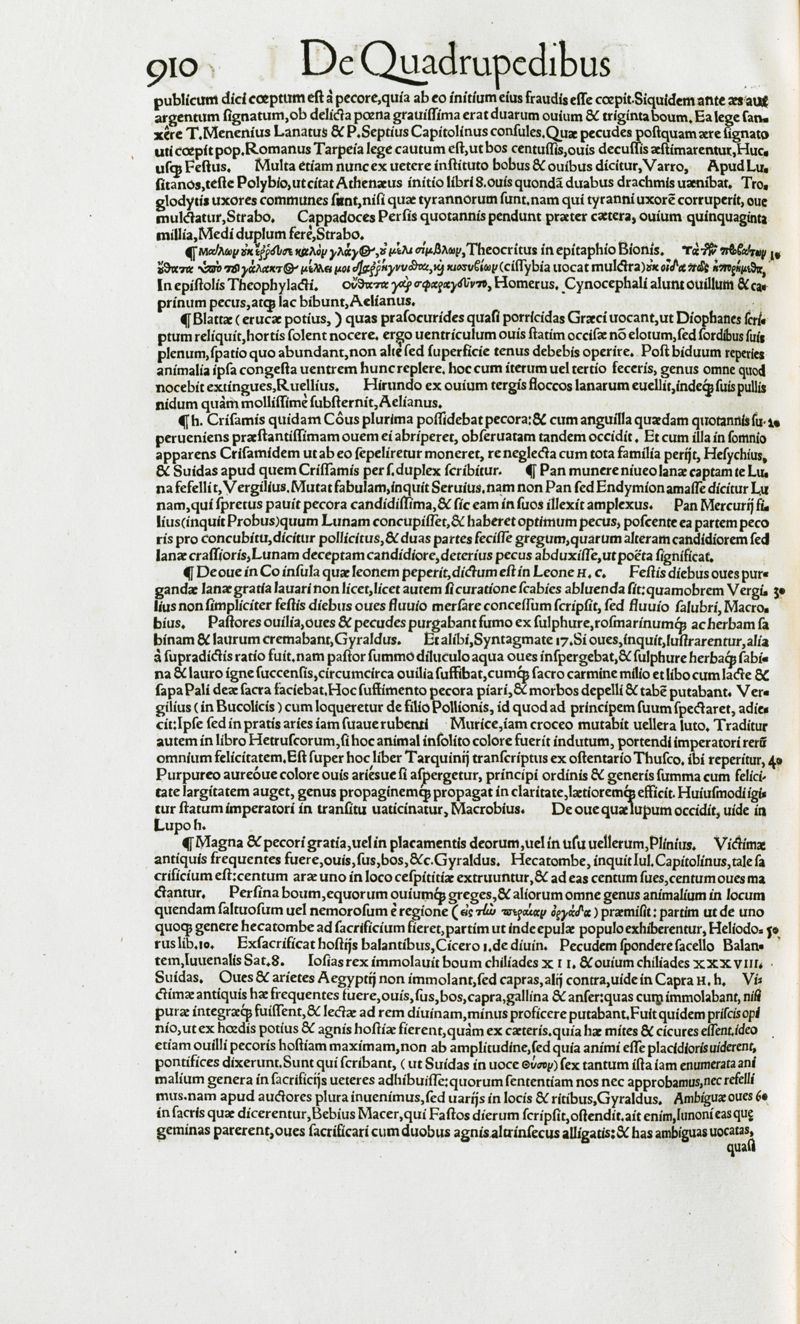 910 De Quadrupedibus
publicum dici cœptum est à pecore, quia ab eo initium eius fraudis esse cœpit. Siquidem ante æs aut
argentum signatum, ob delicta pœna grauissima erat duarum ouium & triginta boum. Ea lege san-
xêre T. Menenius Lanatus & P. Septius Capitolinus consules. Quæ pecudes postquam ære signato
uti cœpit pop. Romanus Tarpeia lege cautum est, ut bos centussis, ouis decussis æstimarentur, Huc.
usq́ Festus. Multa etiam nunc ex uetere instituto bobus & ouibus dicitur, Varro, Apud Lu.
sitanos, teste Polybio, ut citat Athenæus initio libri 8. ouis quondã duabus drachmis uænibat. Tro.
glodytis uxores communes sunt, nisi quæ tyrannorum sunt. nam qui tyranni uxorẽ corruperit, oue
mulctatur, Strabo. Cappadoces Persis quotannis pendunt præter cætera, ouium quinquaginta
millia, Medi duplum ferè, Strabo.
¶ καλὸν γλάγος, μέλι σίμβλων, Theocritus in epitaphio Bionis. 10
(cissybia uocat mulctra)
In epistolis Theophylacti. οὔθατα γὰρ σφαραγεῦντο, Homerus. Cynocephali alunt ouillum & ca-
prinum pecus, atq́ lac bibunt, Aelianus.
¶ Blattæ (erucæ potius,) quas prasocurides quasi porricidas Græci uocant, ut Diophanes scri-
ptum reliquit, hortis solent nocere. ergo uentriculum ouis statim occisæ nõ elotum, sed sordibus suis
plenum, spatio quo abundant, non altè sed superficie tenus debebis operire. Post biduum reperies
animalia ipsa congesta uentrem hunc replere. hoc cum iterum uel tertio feceris, genus omne quod
nocebit extingues, Ruellius. Hirundo ex ouium tergis floccos lanarum euellit, indeq́ suis pullis
nidum quàm mollissimè substernit, Aelianus.
¶ h. Crisamis quidam Côus plurima possidebat pecora: & cum anguilla quædam quotannis su- 20
perueniens præstantissimam ouem ei abriperet, obseruatam tandem occidit. Et cum illa in somnio
apparens Crisamidem ut ab eo sepeliretur moneret, re neglecta cum tota familia perijt, Hesychius,
& Suidas apud quem Crissamis per s. duplex scribitur. ¶ Pan munere niueo lanæ captam te Lu.
na fefellit, Vergilius. Mutat fabulam, inquit Seruius. nam non Pan sed Endymion amasse dicitur Lu
nam, qui spretus pauit pecora candidissima, & sic eam in suos illexit amplexus. Pan Mercurij fi.
lius (inquit Probus) quum Lunam concupisset, & haberet optimum pecus, poscente ea partem peco
ris pro concubitu, dicitur pollicitus, & duas partes fecisse gregum, quarum alteram candidiorem sed
lanæ crassioris, Lunam deceptam candidiore, deterius pecus abduxisse, ut poëta significat.
¶ De oue in Co insula quæ leonem peperit, dictum est in Leone H. c. Festis diebus oues pur-
gandæ lanæ gratia lauari non licet, licet autem si curatione scabies abluenda sit: quamobrem Vergi. 30
lius non simpliciter festis diebus oues fluuio mersare concessum scripsit, sed fluuio salubri, Macro.
bius. Pastores ouilia, oues & pecudes purgabant fumo ex sulphure, rosmarinumq́ ac herbam sa
binam & laurum cremabant, Gyraldus. Et alibi, Syntagmate 17. Si oues, inquit, lustrarentur, alia
à supradictis ratio fuit. nam pastor summo diluculo aqua oues inspergebat, & sulphure herbaq́ sabi-
na & lauro igne succensis, circumcirca ouilia suffibat, cumq́ sacro carmine milio et libo cum lacte &
sapa Pali deæ sacra faciebat. Hoc suffimento pecora piari, & morbos depelli & tabẽ putabant. Ver-
gilius (in Bucolicis) cum loqueretur de filio Pollionis, id quod ad principem suum spectaret, adie-
cit: Ipse sed in pratis aries iam suaue rubenti Murice, iam croceo mutabit uellera luto. Traditur
autem in libro Hetruscorum, si hoc animal insolito colore fuerit indutum, portendi imperatori rerũ
omnium felicitatem. Est super hoc liber Tarquinij transcriptus ex ostentario Thusco. ibi reperitur, 40
Purpureo aureóue colore ouis ariésue si aspergetur, principi ordinis & generis summa cum felici-
tate largitatem auget, genus propaginemq́ propagat in claritate, lætioremq́ efficit. Huiusmodi igi-
tur statum imperatori in transitu uaticinatur, Macrobius. De oue quæ lupum occidit, uide in
Lupo h.
¶ Magna & pecori gratia, uel in placamentis deorum, uel in usu uellerum, Plinius. Victimæ
antiquis frequentes fuere, ouis, sus, bos, &c. Gyraldus. Hecatombe, inquit Iul. Capitolinus, tale sa
crificium est: centum aræ uno in loco cespititiæ extruuntur, & ad eas centum sues, centum oues ma
ctantur. Persina boum, equorum ouiumq́ greges, & aliorum omne genus animalium in locum
quendam saltuosum uel nemorosum è regione (εἰς τὴν περαίαν ὀργάδα) præmisit: partim ut de uno
quoq́ genere hecatombe ad sacrificium fieret, partim ut inde epulæ populo exhiberentur, Heliodo. 50
rus lib. 10. Exsacrificat hostijs balantibus, Cicero 1. de diuin. Pecudem spondere sacello Balan-
tem, Iuuenalis Sat. 8. Iosias rex immolauit boum chiliades XII. & ouium chiliades XXXVIII.
Suidas. Oues & arietes Aegyptij non immolant, sed capras, alij contra, uide in Capra H. h. Vi-
ctimæ antiquis hæ frequentes fuere, ouis, sus, bos, capra, gallina & anser: quas cum immolabant, nisi
puræ integræq́ fuissent, & lectæ ad rem diuinam, minus proficere putabant. Fuit quidem priscis opi
nio, ut ex hœdis potius & agnis hostiæ fierent, quàm ex cæteris. quia hæ mites & cicures essent. ideo
etiam ouilli pecoris hostiam maximam, non ab amplitudine, sed quia animi esse placidioris uiderent,
pontifices dixerunt. Sunt qui scribant, (ut Suidas in uoce Θύσον) sex tantum ista iam enumerata ani
malium genera in sacrificijs ueteres adhibuisse: quorum sententiam nos nec approbamus, nec refelli
mus. nam apud auctores plura inuenimus, sed uarijs in locis & ritibus, Gyraldus. Ambiguæ oues 60
in sacris quæ dicerentur, Bebius Macer, qui Fastos dierum scripsit, ostendit. ait enim, Iunoni eas quę
geminas parerent, oues sacrificari cum duobus agnis altrinsecus alligatis: & has ambiguas uocatas,
quasi